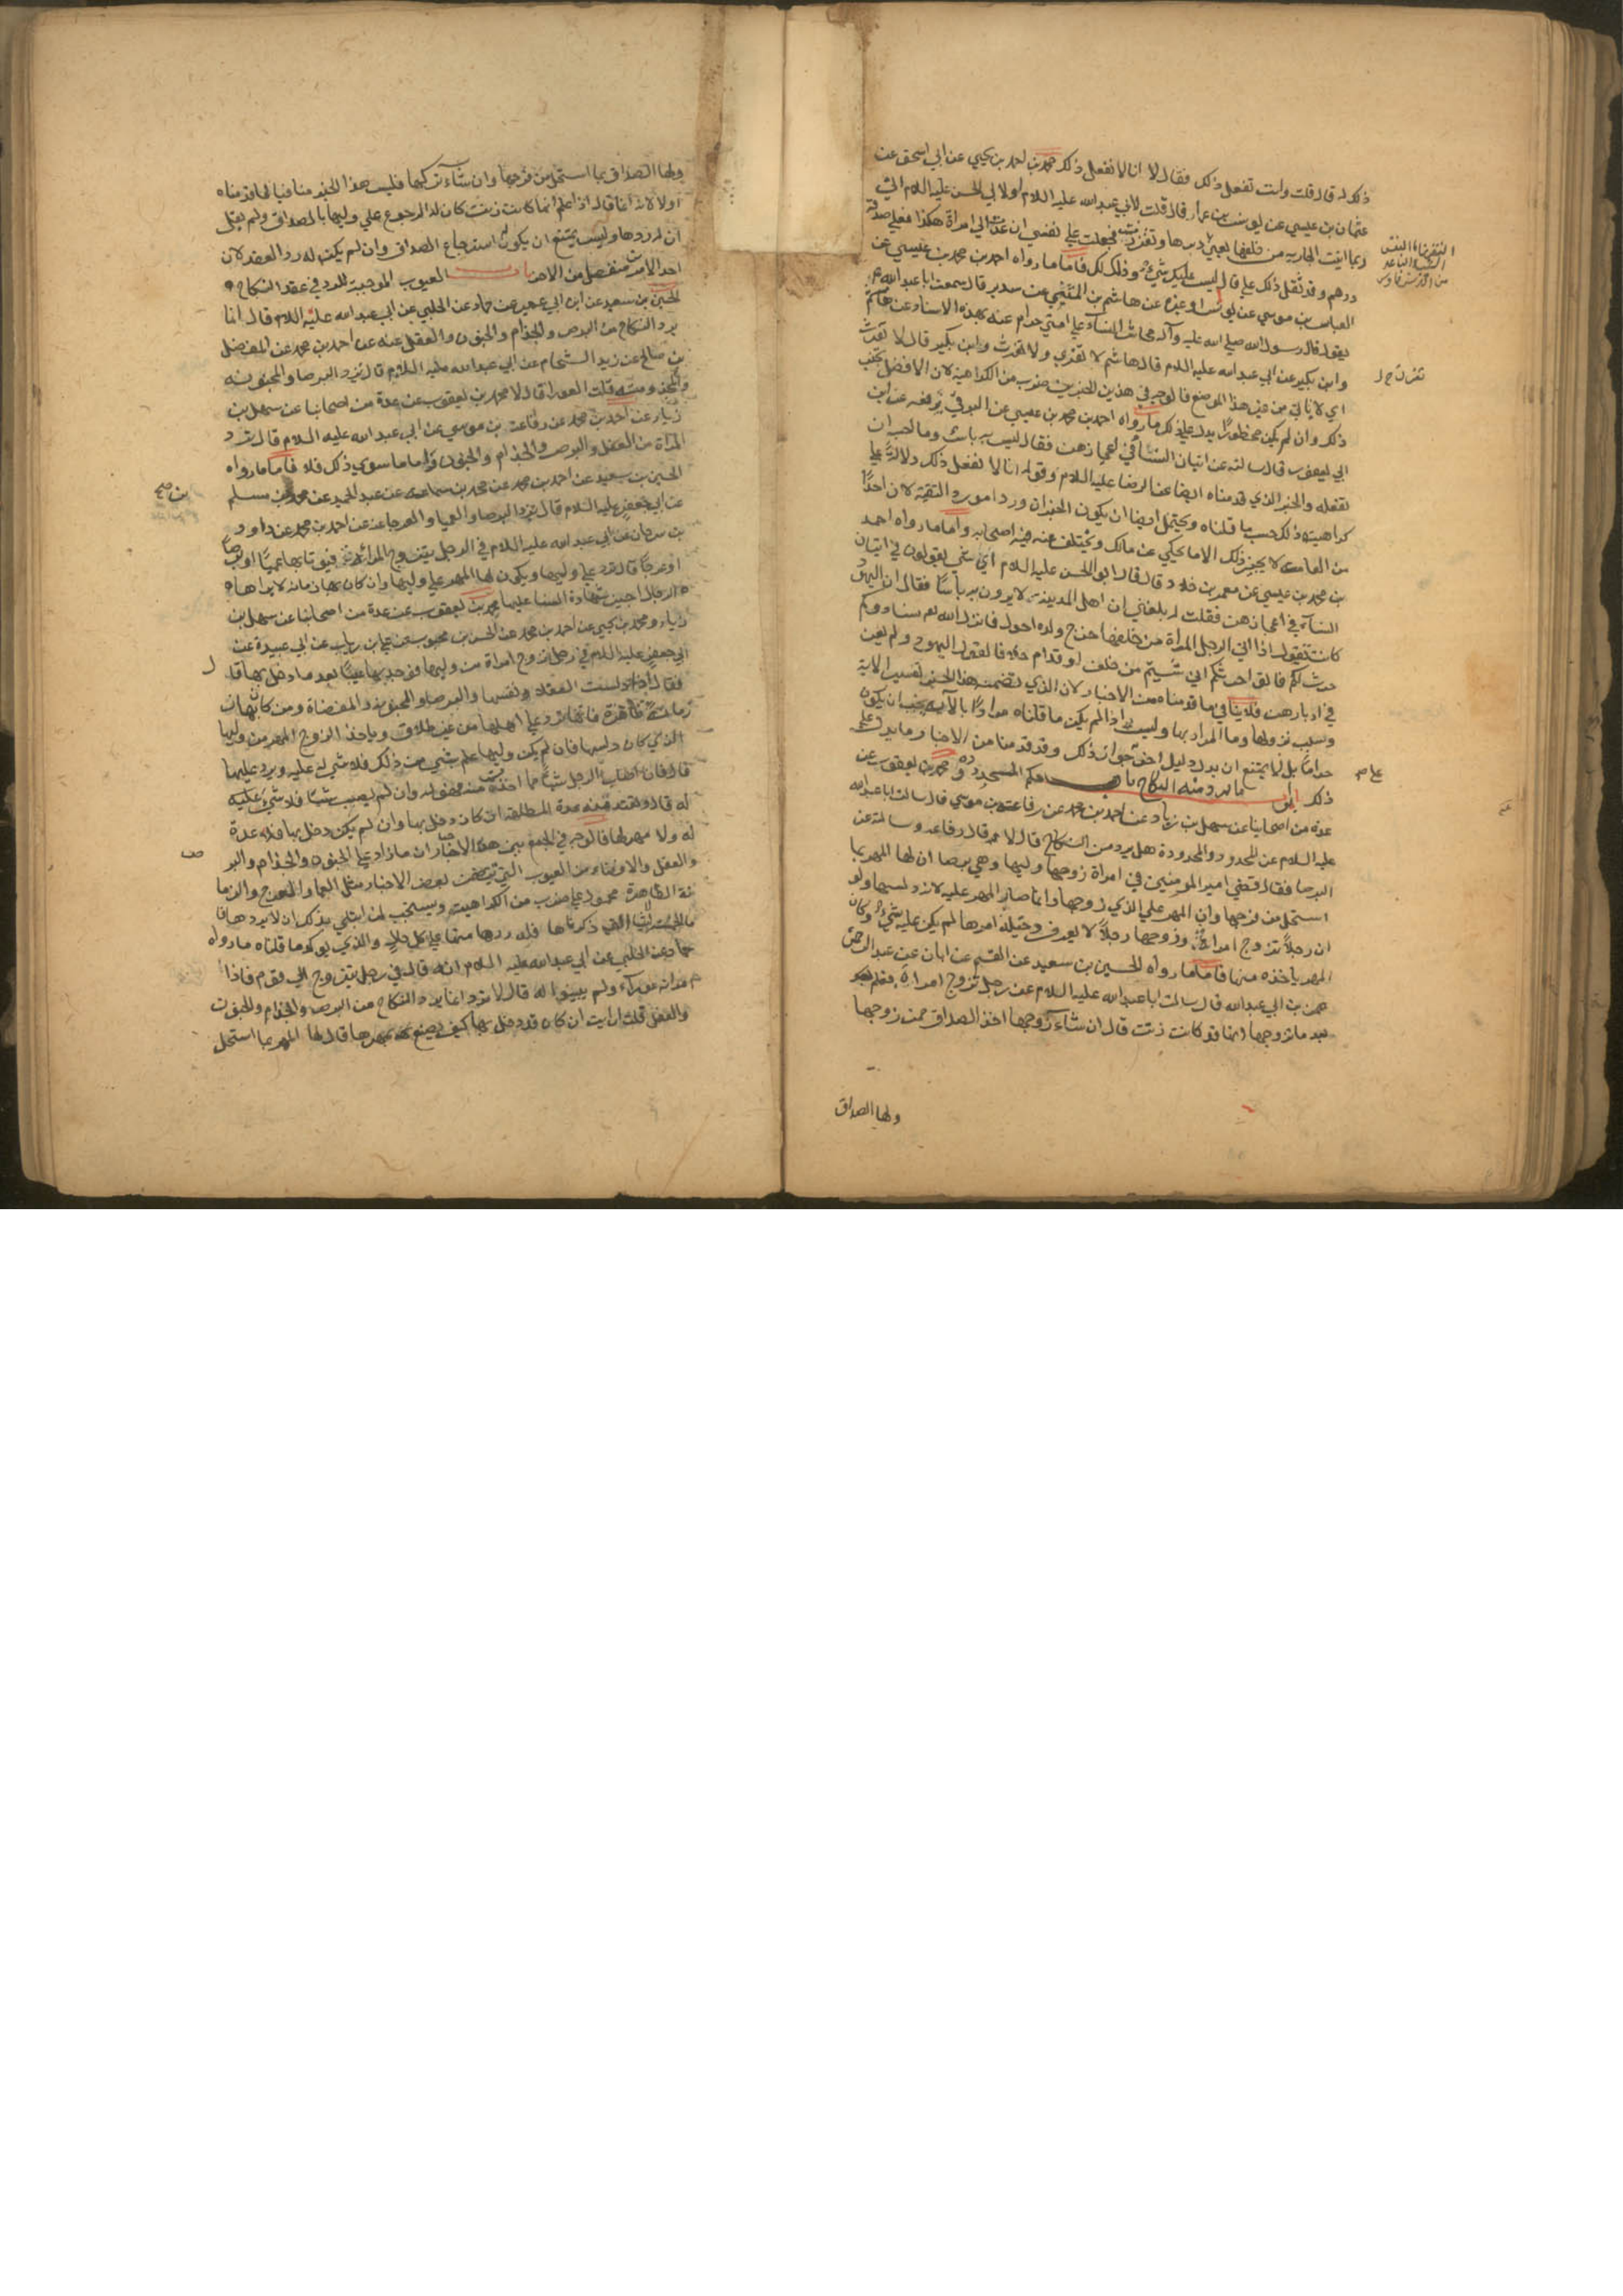 ذلك له قال قلت وانت تفعل ذلك فقال لا انا لا نفعل ذلك محمد بن احمد بن يحيى عن ابي اسحق عن
عثمان بن عيسى عن يونس بن عمار قال قلت لابي عبد الله عليه السلام او لابي الحسن عليه السلام اني
ربما اتيت الجارية من خلفها يعني دبرها وتفززت فجعلت على نفسي ان عدت الى امراة هكذا فعلي صدقة
درهم وقد ثقل ذلك علي قال ليس عليك شيء وذلك لك فاما ما رواه احمد بن محمد بن عيسى عن
العباس بن موسى عن يونس او غيره عن هاشم بن المثنى عن سدير قال سمعت ابا عبد الله ع
يقول قال رسول الله صلى الله عليه وآله محاش النساء على امتي حرام عنه بهذه الاسناد عن هاشم
وابن بكير عن ابي عبد الله عليه السلام قال هاشم لا تفري ولا تفرث وابن بكير قال لا تفرث
اي لا ياتي من غير هذا الموضع فالوجه في هذين الخبرين ضرب من الكراهية لان الافضل تجنب
ذلك وان لم يكن محظورا يدل على ذلك ما رواه احمد بن محمد بن عيسى عن البرقي يرفعه عن ابن
ابي يعفور قال سالته عن اتيان النساء في اعجازهن فقال ليس به باس وما احب ان
تفعله والخبر الذي قدمناه ايضا عن الرضا عليه السلام وقوله انا لا نفعل ذلك دلالة على
كراهيته ذلك حسب ما قلناه ويحتمل ايضا ان يكون الخبران وردا مورد التقية لان احدا
من العامة لا يجيز ذلك الا ما يحكى عن مالك ويختلف عنه فيه اصحابه واما ما رواه احمد
بن محمد بن عيسى عن معمر بن خلاد قال قال ابو الحسن عليه السلام اي شي يقولون في اتيان
النساء في اعجازهن فقلت له بلغني ان اهل المدينة لا يرون به باسا فقال ان اليهود
كانت تقول اذا اتى الرجل المراة من خلفها خرج ولده احول فانزل الله نساؤكم
حرث لكم فاتوا حرثكم انى شئتم من خلف او قدام خلافا لقول اليهود ولم يعن
في ادبارهن فلا ينافي ما قدمناه من الاخبار لان الذي تضمنه هذا الخبر تفسير الاية
وسبب نزولها وما المراد بها وليس اذا لم يكن ما قلناه مرادا بالاية يجب ان يكون
حراما بل لا يمتنع ان يدل دليل اخر على جواز ذلك وقد قدمنا من الاخبار ما يدل على
ذلك ابواب ما يرد منه النكاح باب حكم المحدودة محمد بن يعقوب عن
عدة من اصحابنا عن سهل بن زياد عن احمد بن محمد عن رفاعة بن موسى قال سالت ابا عبد الله
عليه السلام عن المحدود والمحدودة هل يرد من النكاح قال لا قال رفاعة وسالته عن
البرصا فقال قضى امير المومنين في امراة زوجها وليها وهي برصا ان لها المهر بما
استحل من فرجها وان المهر على الذي زوجها وانما صار المهر عليه لانه دلسها ولو
ان رجلا تزوج امراة وزوجها رجلا لا يعرف دخيلة امرها لم يكن عليه شيء وكان
المهر ياخذه منها فاما ما رواه الحسين بن سعيد عن القسم عن ابان عن عبد الرحمن
بن ابي عبد الله قال سالت ابا عبد الله عليه السلام عن رجل تزوج امراة فعلم
بعد ما تزوجها انها قد كانت زنت قال ان شاء زوجها اخذ الصداق ممن زوجها
ولها الصداق
ولها الصداق بما استحل من فرجها وان شاء تركها فليس هذا الخبر منافيا لما قدمناه
اولا لانه انما قال اذا علم انها كانت زنت كان له الرجوع على وليها بالصداق ولم يقل
ان له ردها وليس يمتنع ان يكون له استرجاع الصداق وان لم يكن له رد العقد لان
احد الامرين منفصل من الاخر باب العيوب الموجبة للرد في عقد النكاح
الحسين بن سعيد عن ابن ابي عمير عن حماد عن الحلبي عن ابي عبد الله عليه السلام قال انما
يرد النكاح من البرص والجذام والجنون والعفل عنه عن احمد بن محمد عن المفضل
بن صالح عن زيد الشحام عن ابي عبد الله عليه السلام قال ترد البرصا والمجنونة
والمجذومة قلت العورا قال لا محمد بن يعقوب عن عدة من اصحابنا عن سهل بن
زياد عن احمد بن محمد عن رفاعة بن موسى عن ابي عبد الله عليه السلام قال ترد
المراة من العفل والبرص والجذام والجنون واما ما سوى ذلك فلا فاما ما رواه
الحسين بن سعيد عن احمد بن محمد عن محمد بن سماعة عن عبد الحميد عن محمد بن مسلم
عن ابي جعفر عليه السلام قال ترد البرصا والعميا والعرجا عنه عن احمد بن محمد عن داود
بن سرحان عن ابي عبد الله عليه السلام في الرجل يتزوج المراة فيوتى بها عميا او برصا
او عرجا قال ترد على وليها ويكون لها المهر على وليها وان كان بها زمانة لا يراها
الرجال اجيز شهادة النسا عليها محمد بن يعقوب عن عدة من اصحابنا عن سهل بن
زياد ومحمد بن يحيى عن احمد بن محمد عن الحسن بن محبوب عن علي بن رياب عن ابي عبيدة عن
ابي جعفر عليه السلام في رجل تزوج امراة من وليها فوجد بها عيبا بعد ما دخل بها قال
فقال اذا دلست العفلاء ونفسها والبرصا والمجنونة والمفضاة ومن كان بها
زمانة ظاهرة فانها ترد على اهلها من غير طلاق وياخذ الزوج المهر من وليها
الذي كان دلسها فان لم يكن وليها علم بشي من ذلك فلا شي له عليه ويرد عليها
قال فان اصاب الرجل شيئا مما اخذت منه فهو له وان لم يصب شيئا فلا شيء عليه
له قال وتعتد منه عدة المطلقة ان كان دخل بها وان لم يكن دخل بها فلا عدة
له ولا مهر لها فالوجه في الجمع بين هذه الاخبار ان ما زاد على الجنون والجذام والبر
والعفل والافضاء من العيوب التي تضمنت بعض الاخبار مثل العما والعرج والزما
نة الظاهرة محمول على ضرب من الكراهية ويستحب لمن ابتلي بذلك ان لا يردها فا
التي ذكرناها فله ردها منها على كل حال والذي يوكد ما قلناه ما رواه
حماد عن الحلبي عن ابي عبد الله عليه السلام انه قال في رجل يتزوج الى قوم فاذا
امراته عوراء ولم يبينوا له قال لا ترد انما يرد النكاح من البرص والجذام والجنون
والعفل قلت ارايت ان كان قد دخل بها كيف يصنع بمهرها قال لها المهر بما استحل